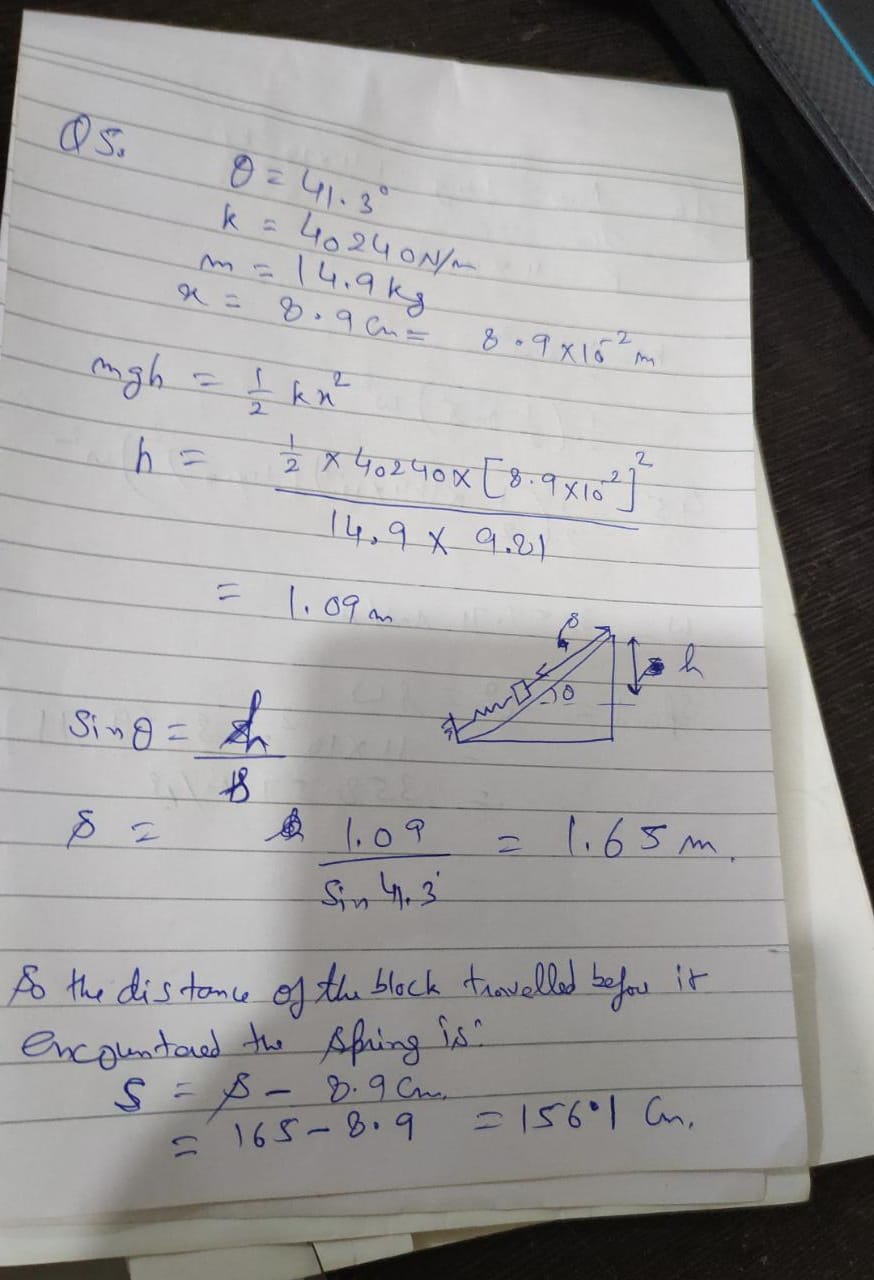 Q5.
θ = 41.3°
k = 40240N/m
m = 14.9 kg
x = 8.9 Cm = 8.9 x 10⁻² m
mgh = 1/2 kx²
h = 1/2 x 40240 x [8.9 x 10⁻²]² / 14.9 x 9.81
= 1.09 m
s
h
θ
Sin θ = h / s
s = 1.09 / Sin 41.3° = 1.65 m.
So the distance of the block travelled before it
encountered the spring is:
S = s - 8.9 Cm.
= 165 - 8.9 = 156.1 Cm.